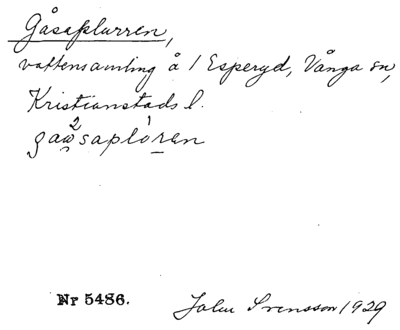 Gåsaplurren,
vattensamling å 1 Esperyd, Vånga sn,
Kristianstads l.
gaw²saplo̍ren
Nr 5486.
John Svensson 1929